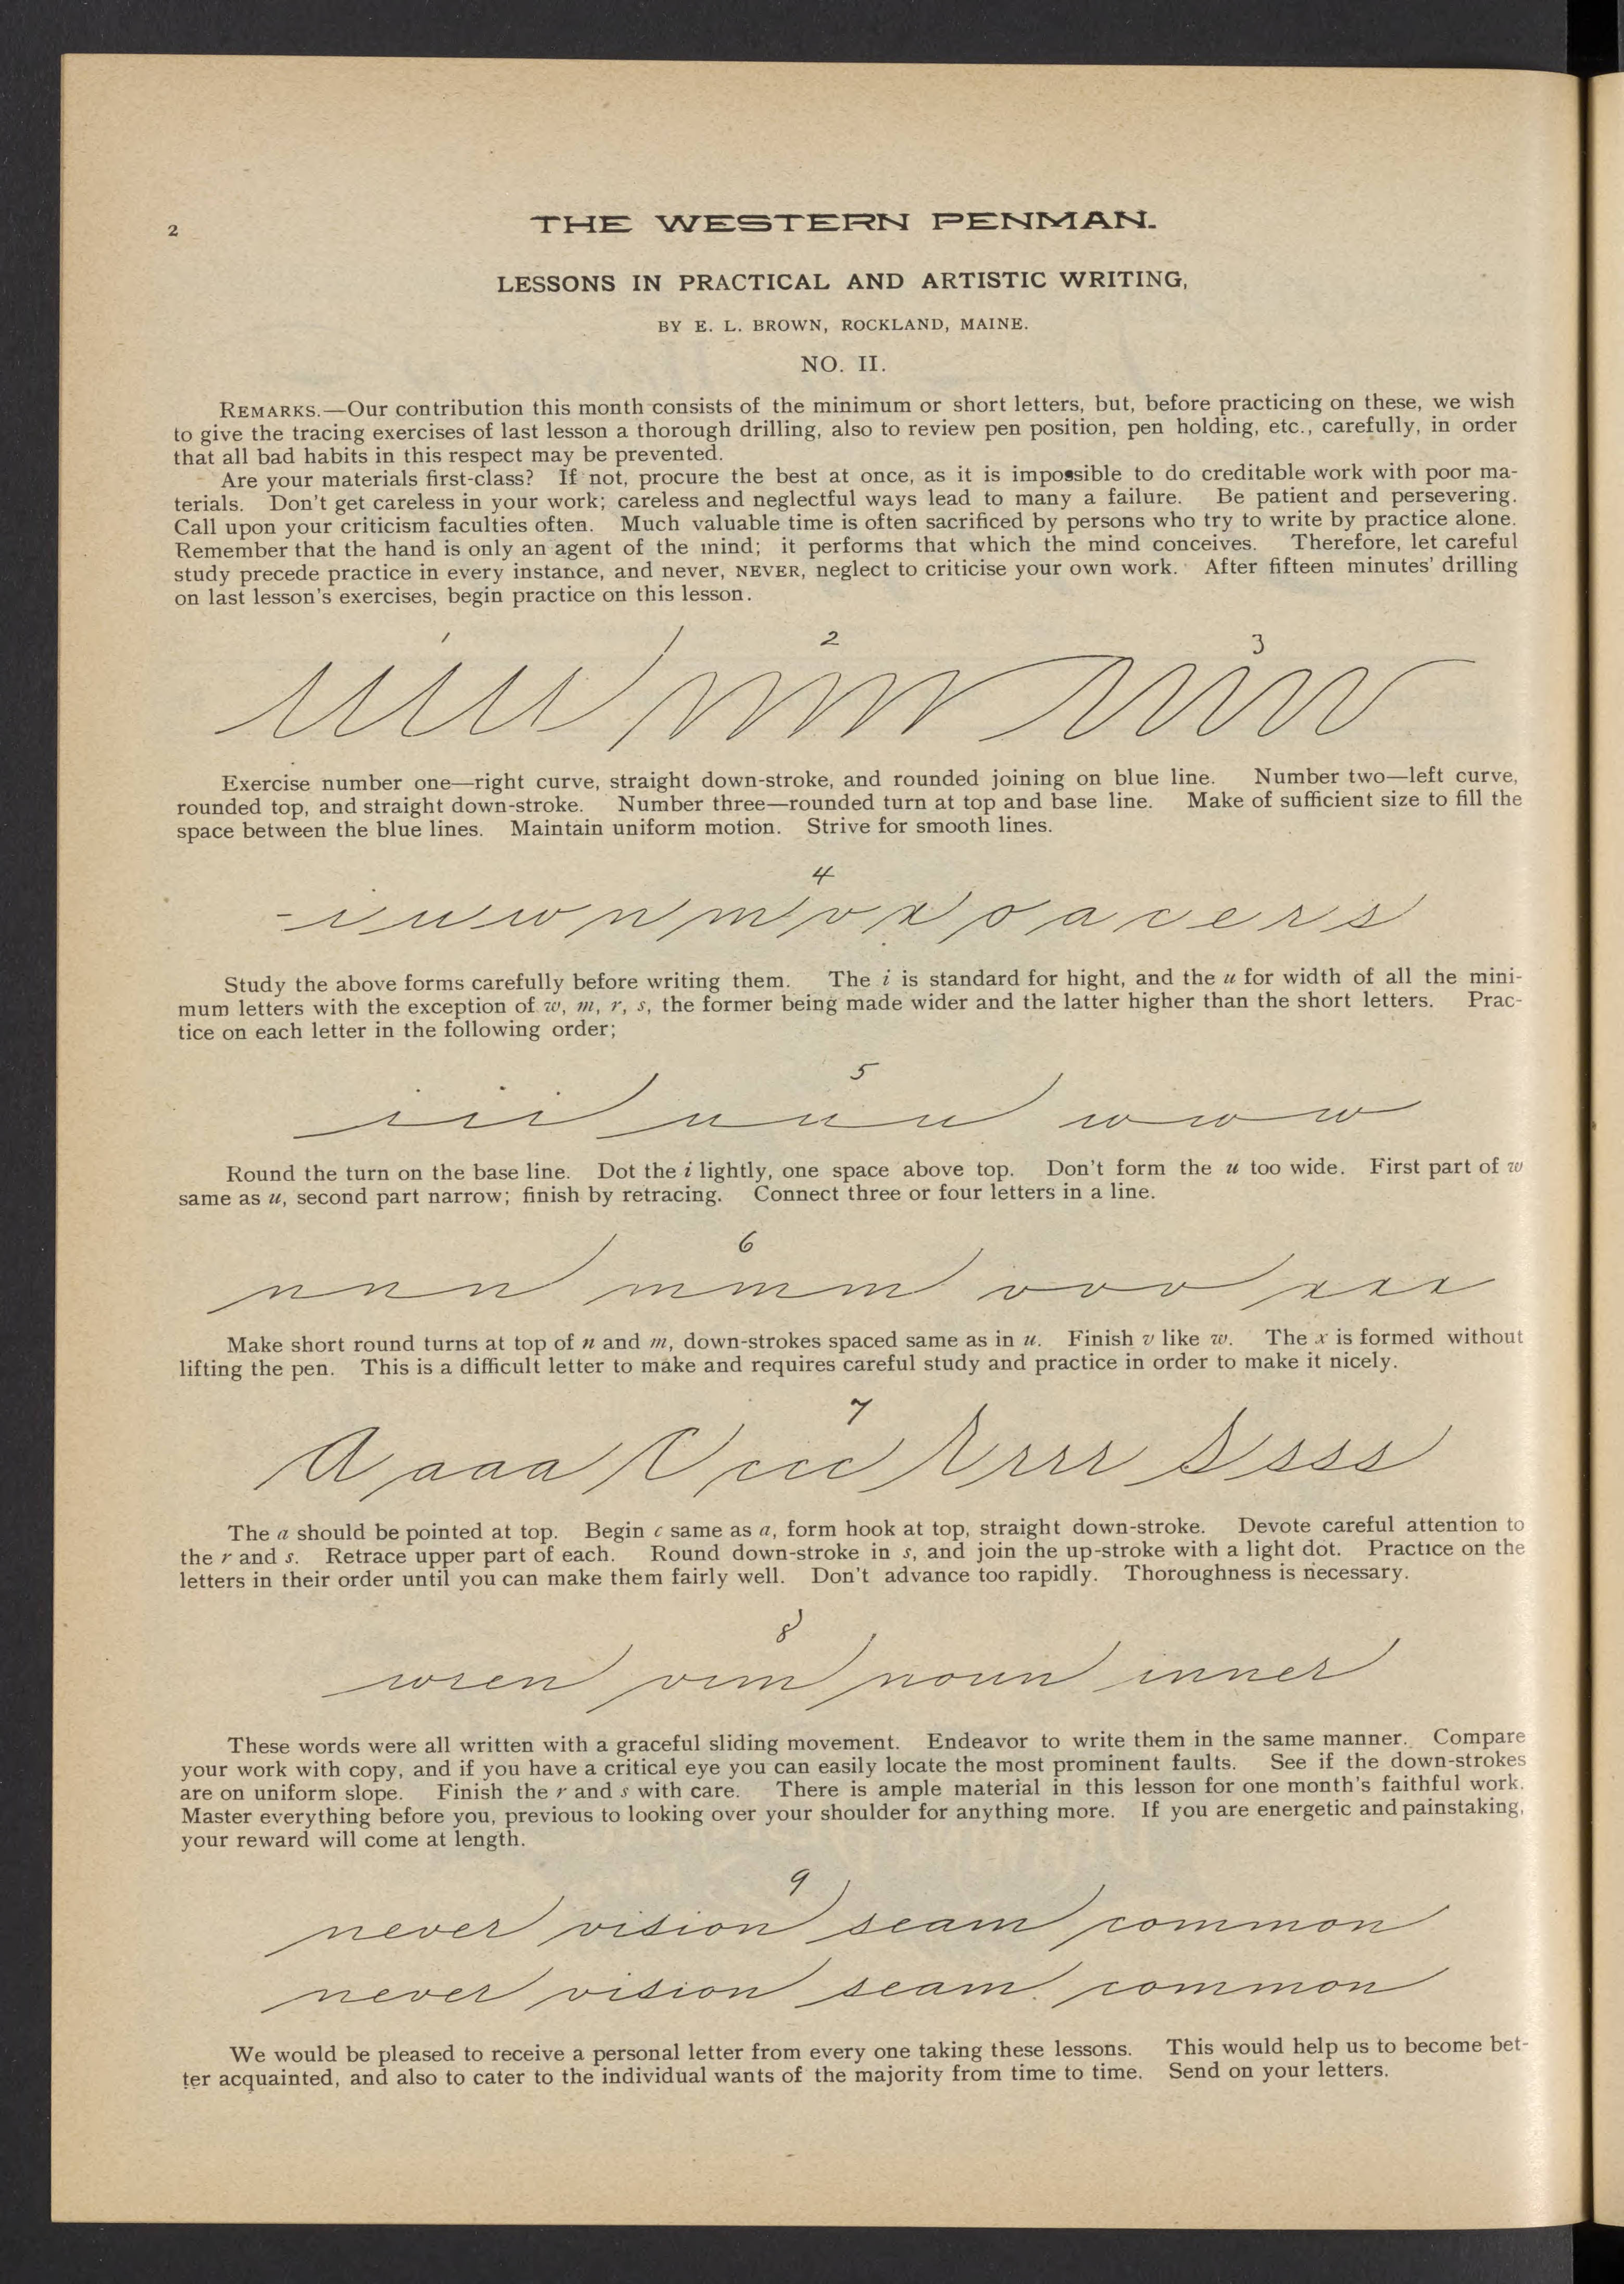 2
THE WESTERN PENMAN.
LESSONS IN PRACTICAL AND ARTISTIC WRITING,
BY E. L. BROWN, ROCKLAND, MAINE.
NO. II.
REMARKS.—Our contribution this month consists of the minimum or short letters, but, before practicing on these, we wish
to give the tracing exercises of last lesson a thorough drilling, also to review pen position, pen holding, etc., carefully, in order
that all bad habits in this respect may be prevented.
Are your materials first-class? If not, procure the best at once, as it is impossible to do creditable work with poor ma-
terials. Don't get careless in your work; careless and neglectful ways lead to many a failure. Be patient and persevering.
Call upon your criticism faculties often. Much valuable time is often sacrificed by persons who try to write by practice alone.
Remember that the hand is only an agent of the mind; it performs that which the mind conceives. Therefore, let careful
study precede practice in every instance, and never, NEVER, neglect to criticise your own work. After fifteen minutes' drilling
on last lesson's exercises, begin practice on this lesson.
1 2 3
Exercise number one—right curve, straight down-stroke, and rounded joining on blue line. Number two—left curve,
rounded top, and straight down-stroke. Number three—rounded turn at top and base line. Make of sufficient size to fill the
space between the blue lines. Maintain uniform motion. Strive for smooth lines.
4
i u w n m v x o a c e r s
Study the above forms carefully before writing them. The i is standard for hight, and the u for width of all the mini-
mum letters with the exception of w, m, r, s, the former being made wider and the latter higher than the short letters. Prac-
tice on each letter in the following order;
5
i i i u u u w w w
Round the turn on the base line. Dot the i lightly, one space above top. Don't form the u too wide. First part of w
same as u, second part narrow; finish by retracing. Connect three or four letters in a line.
6
n n n m m m v v v x x x
Make short round turns at top of n and m, down-strokes spaced same as in u. Finish v like w. The x is formed without
lifting the pen. This is a difficult letter to make and requires careful study and practice in order to make it nicely.
7
a a a a c c c c r r r r s s s s
The a should be pointed at top. Begin c same as a, form hook at top, straight down-stroke. Devote careful attention to
the r and s. Retrace upper part of each. Round down-stroke in s, and join the up-stroke with a light dot. Practice on the
letters in their order until you can make them fairly well. Don't advance too rapidly. Thoroughness is necessary.
8
wren vim noun inner
These words were all written with a graceful sliding movement. Endeavor to write them in the same manner. Compare
your work with copy, and if you have a critical eye you can easily locate the most prominent faults. See if the down-strokes
are on uniform slope. Finish the r and s with care. There is ample material in this lesson for one month's faithful work.
Master everything before you, previous to looking over your shoulder for anything more. If you are energetic and painstaking,
your reward will come at length.
9
never vision seam common
never vision seam common
We would be pleased to receive a personal letter from every one taking these lessons. This would help us to become bet-
ter acquainted, and also to cater to the individual wants of the majority from time to time. Send on your letters.